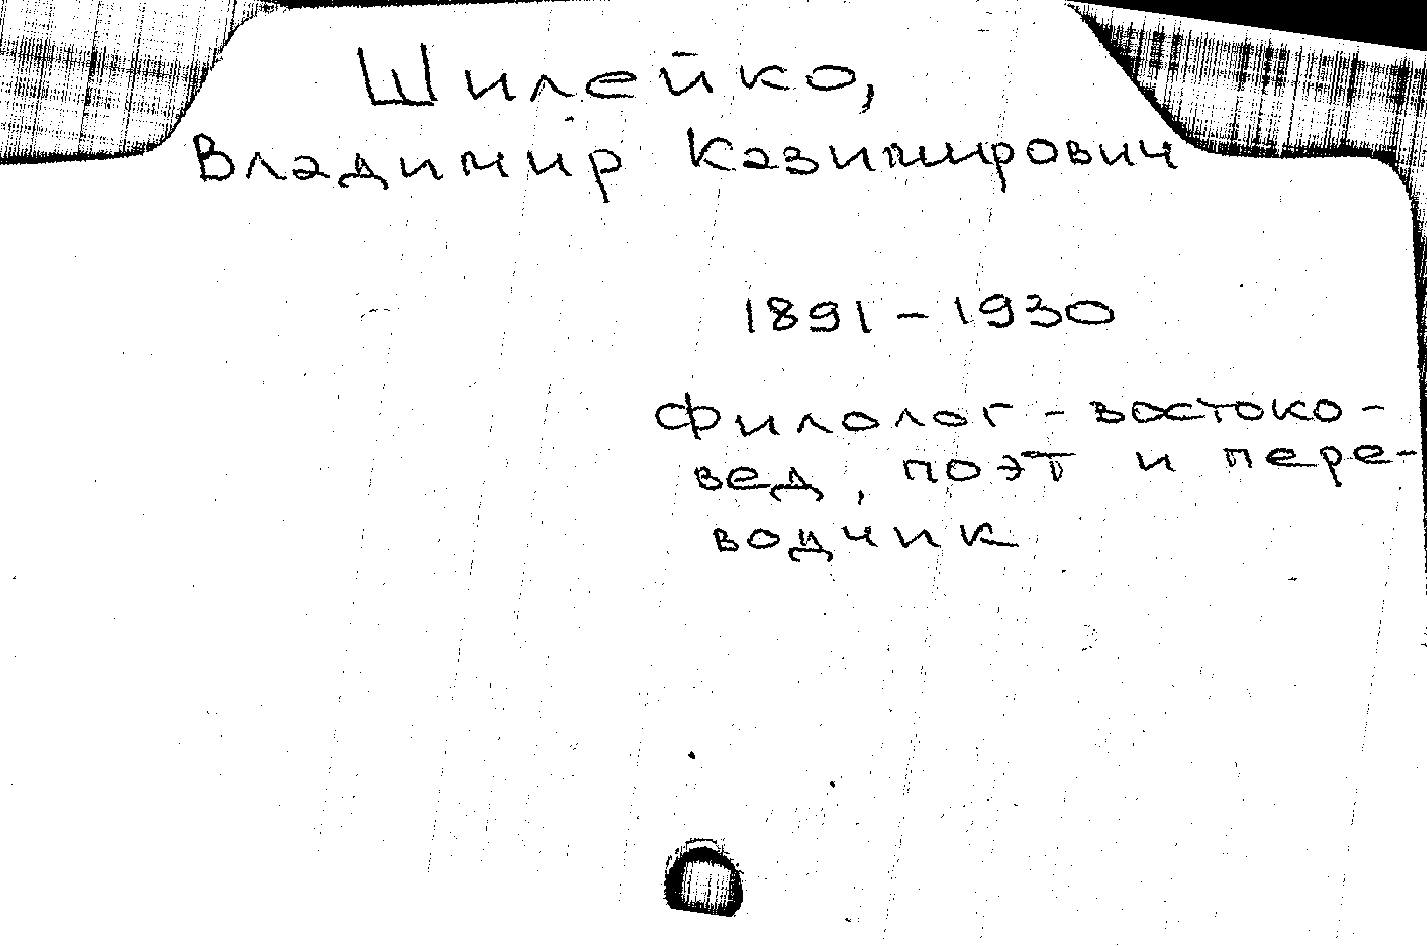 Шилейко,
Владимир Казимирович
1891-1930
филолог-востоко-
вед, поэт и пере-
водчик